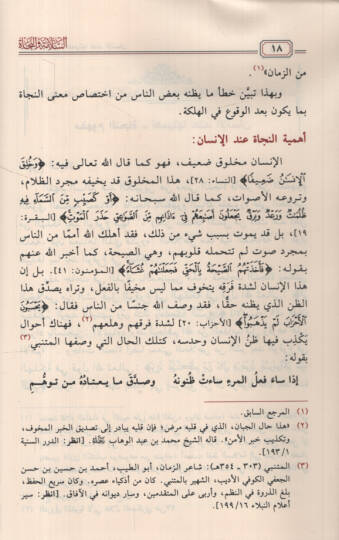 السلامة والنجاة
١٨
من الزمان»(١).
وبهذا تبيَّن خطأ ما يظنه بعض الناس من اختصاص معنى النجاة
بما يكون بعد الوقوع في الهلكة.
أهمية النجاة عند الإنسان:
الإنسان مخلوق ضعيف، فهو كما قال الله تعالى فيه: ﴿وَخُلِقَ
ٱلْإِنسَٰنُ ضَعِيفًا﴾ [النساء: ٢٨]، هذا المخلوق قد يخيفه مجرد الظلام،
وتروعه الأصوات، كما قال الله سبحانه: ﴿أَوْ كَصَيِّبٍ مِّنَ ٱلسَّمَآءِ فِيهِ
ظُلُمَٰتٌ وَرَعْدٌ وَبَرْقٌ يَجْعَلُونَ أَصَٰبِعَهُمْ فِىٓ ءَاذَانِهِم مِّنَ ٱلصَّوَٰعِقِ حَذَرَ ٱلْمَوْتِ﴾ [البقرة:
١٩]، بل قد يموت بسبب شيء من ذلك، فقد أهلك الله أممًا من الناس
بمجرد صوت لم تتحمله قلوبهم، وهي الصيحة، كما أخبر الله عنهم
بقوله: ﴿فَأَخَذَتْهُمُ ٱلصَّيْحَةُ بِٱلْحَقِّ فَجَعَلْنَٰهُمْ غُثَآءً﴾ [المؤمنون: ٤١]. بل إن
هذا الإنسان لشدة فَرَقِه يتخوف مما ليس مخيفًا بالفعل، وتراه يصدِّق هذا
الظن الذي يظنه حقًّا، فقد وصف الله جنسًا من الناس فقال: ﴿يَحْسَبُونَ
ٱلْأَحْزَابَ لَمْ يَذْهَبُوا۟﴾ [الأحزاب: ٢٠] لشدة فرقهم وهلعهم(٢)، فهناك أحوال
يَكْذِب فيها ظنُّ الإنسان وحدسه، كتلك الحال التي وصفها المتنبي(٣)
بقوله:
إذا ساء فعلُ المرءِ ساءتْ ظُنونُهُ وصدَّقَ ما يعتادُهُ من توهُّمِ
(١) المرجع السابق.
(٢) «هذا حال الجبان، الذي في قلبه مرض؛ فإن قلبه يبادر إلى تصديق الخبر المخوف،
وتكذيب خبر الأمن». قاله الشيخ محمد بن عبد الوهاب رحمه الله. [انظر: الدرر السنية
١/١٩٣].
(٣) المتنبي (٣٠٣ - ٣٥٤هـ): شاعر الزمان، أبو الطيب، أحمد بن حسين بن حسن
الجعفي الكوفي الأديب، الشهير بالمتنبي. كان من أذكياء عصره. وكان سريع الحفظ،
بلغ الذروة في النظم، وأربى على المتقدمين، وسار ديوانه في الآفاق. [انظر: سير
أعلام النبلاء ١٦/١٩٩].